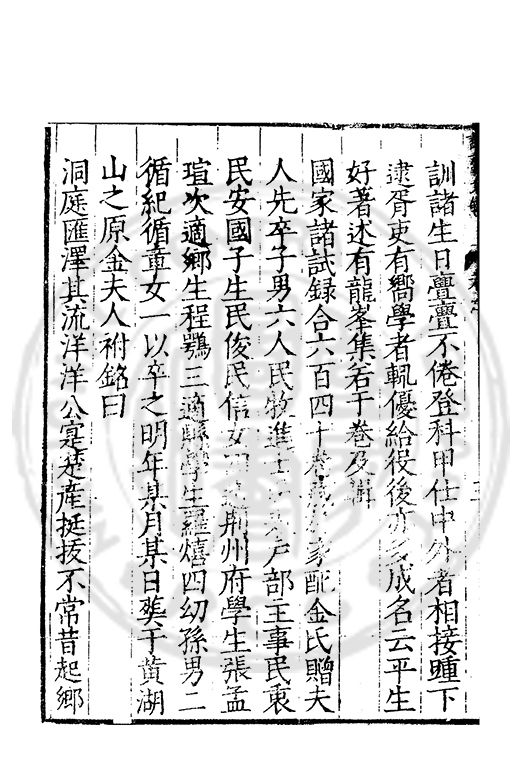 訓諸生日亹亹不倦登科甲仕中外者相接踵下
逮胥吏有嚮學者輒優給役後亦多成名云平生
好著述有龍峯集若干卷及輯
國家諸試録合六百四十卷藏家配金氏贈夫
人先卒子男六人民牧進士戶部主事民衷
民安國子生民俊民信女四適荊州府學生張孟
瑄次適鄉生程鶚三適縣學生羅熺四幼孫男二
循紀循童女一以卒之明年某月某日葬于黃湖
山之原金夫人祔銘曰
洞庭匯澤其流洋洋公寔楚產挺拔不常昔起鄉